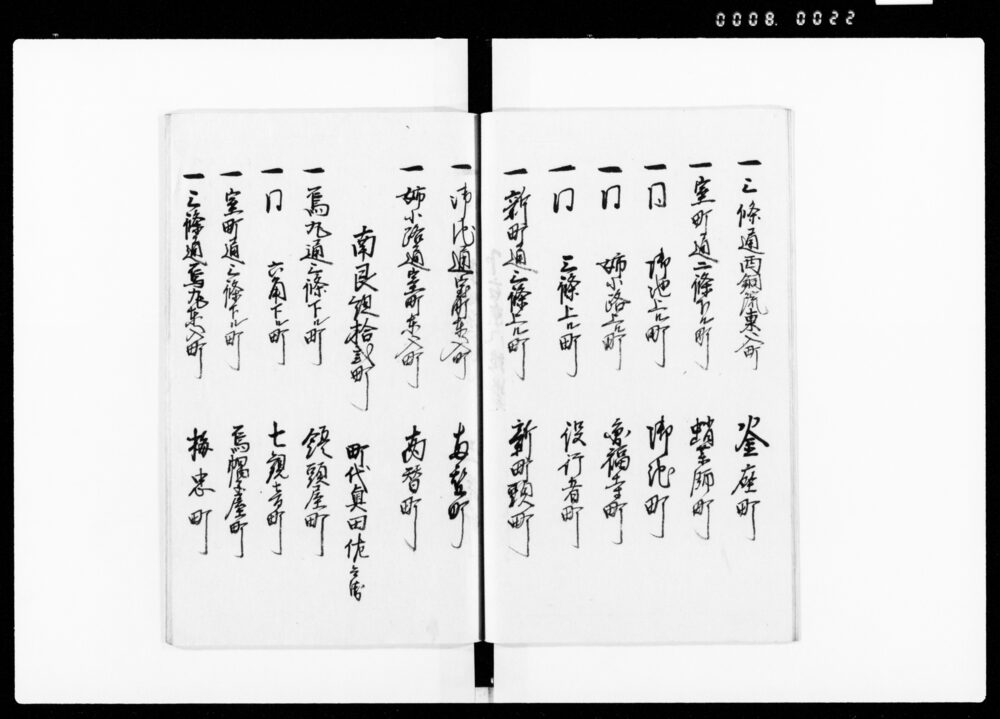 0008. 0022
一三條通西銅篦東入町 釜座町
一室町通二條下ル町 蛸薬師町
一同 御池上ル町 御池町
一同 姉小路上ル町 圓福寺町
一同 三條上ル町 役行者町
一新町通三條上ル町 新町頭町
一御池通室町東入町 両替町
一姉小路通室町東入町 両替町
南艮組拾弐町 町代奥田佐兵衛
一烏丸通三條下ル町 饅頭屋町
一同 六角下ル町 七観音町
一室町通三條下ル町 烏帽子屋町
一三條通烏丸東入町 梅忠町